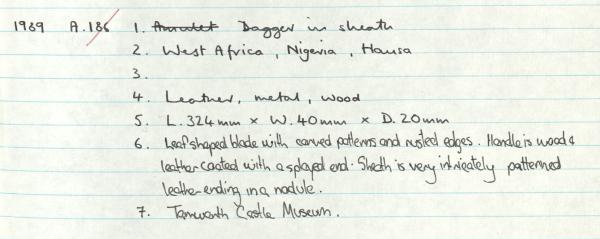 1989 A.186 1. Amulet Dagger in sheath
2. West Africa, Nigeria, Hausa
3.
4. Leather, metal, wood
5. L.324mm x W.40mm x D.20mm
6. Leaf shaped blade with carved patterns and rusted edges. Handle is wood &
leather coated with a splayed end. Sheath is very intricately patterned
leather ending in a nodule.
7. Tamworth Castle Museum.